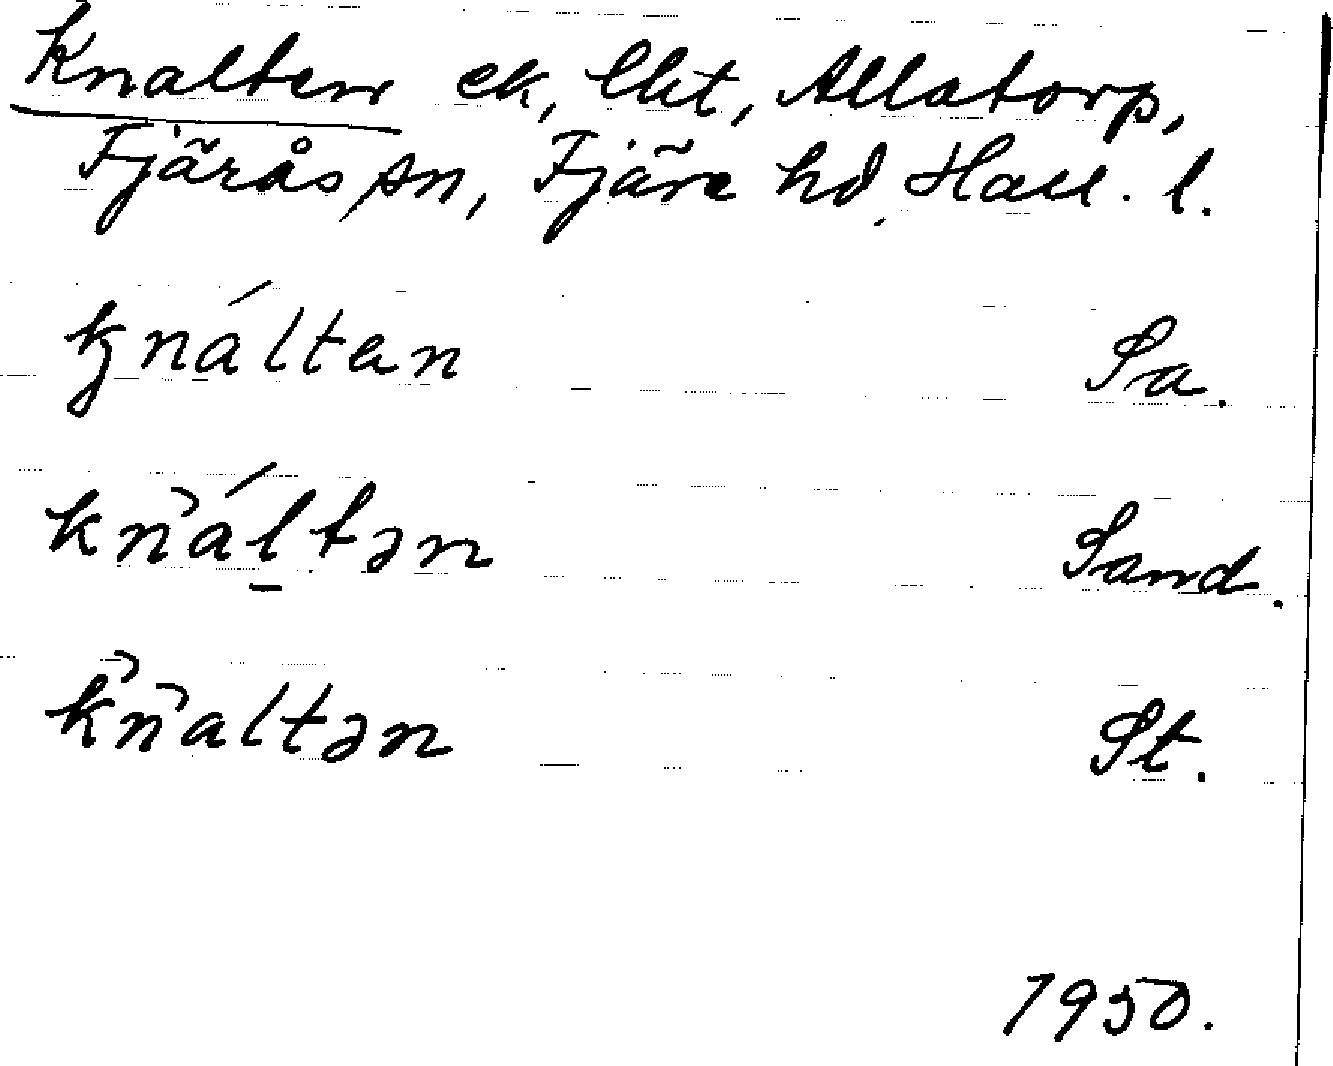 Knalten ek, lht, Allatorp,
Fjärås sn, Fjäre hd, Hall. l.
knáltan Sa.
knáltən Sand.
knaltən St.
1950.